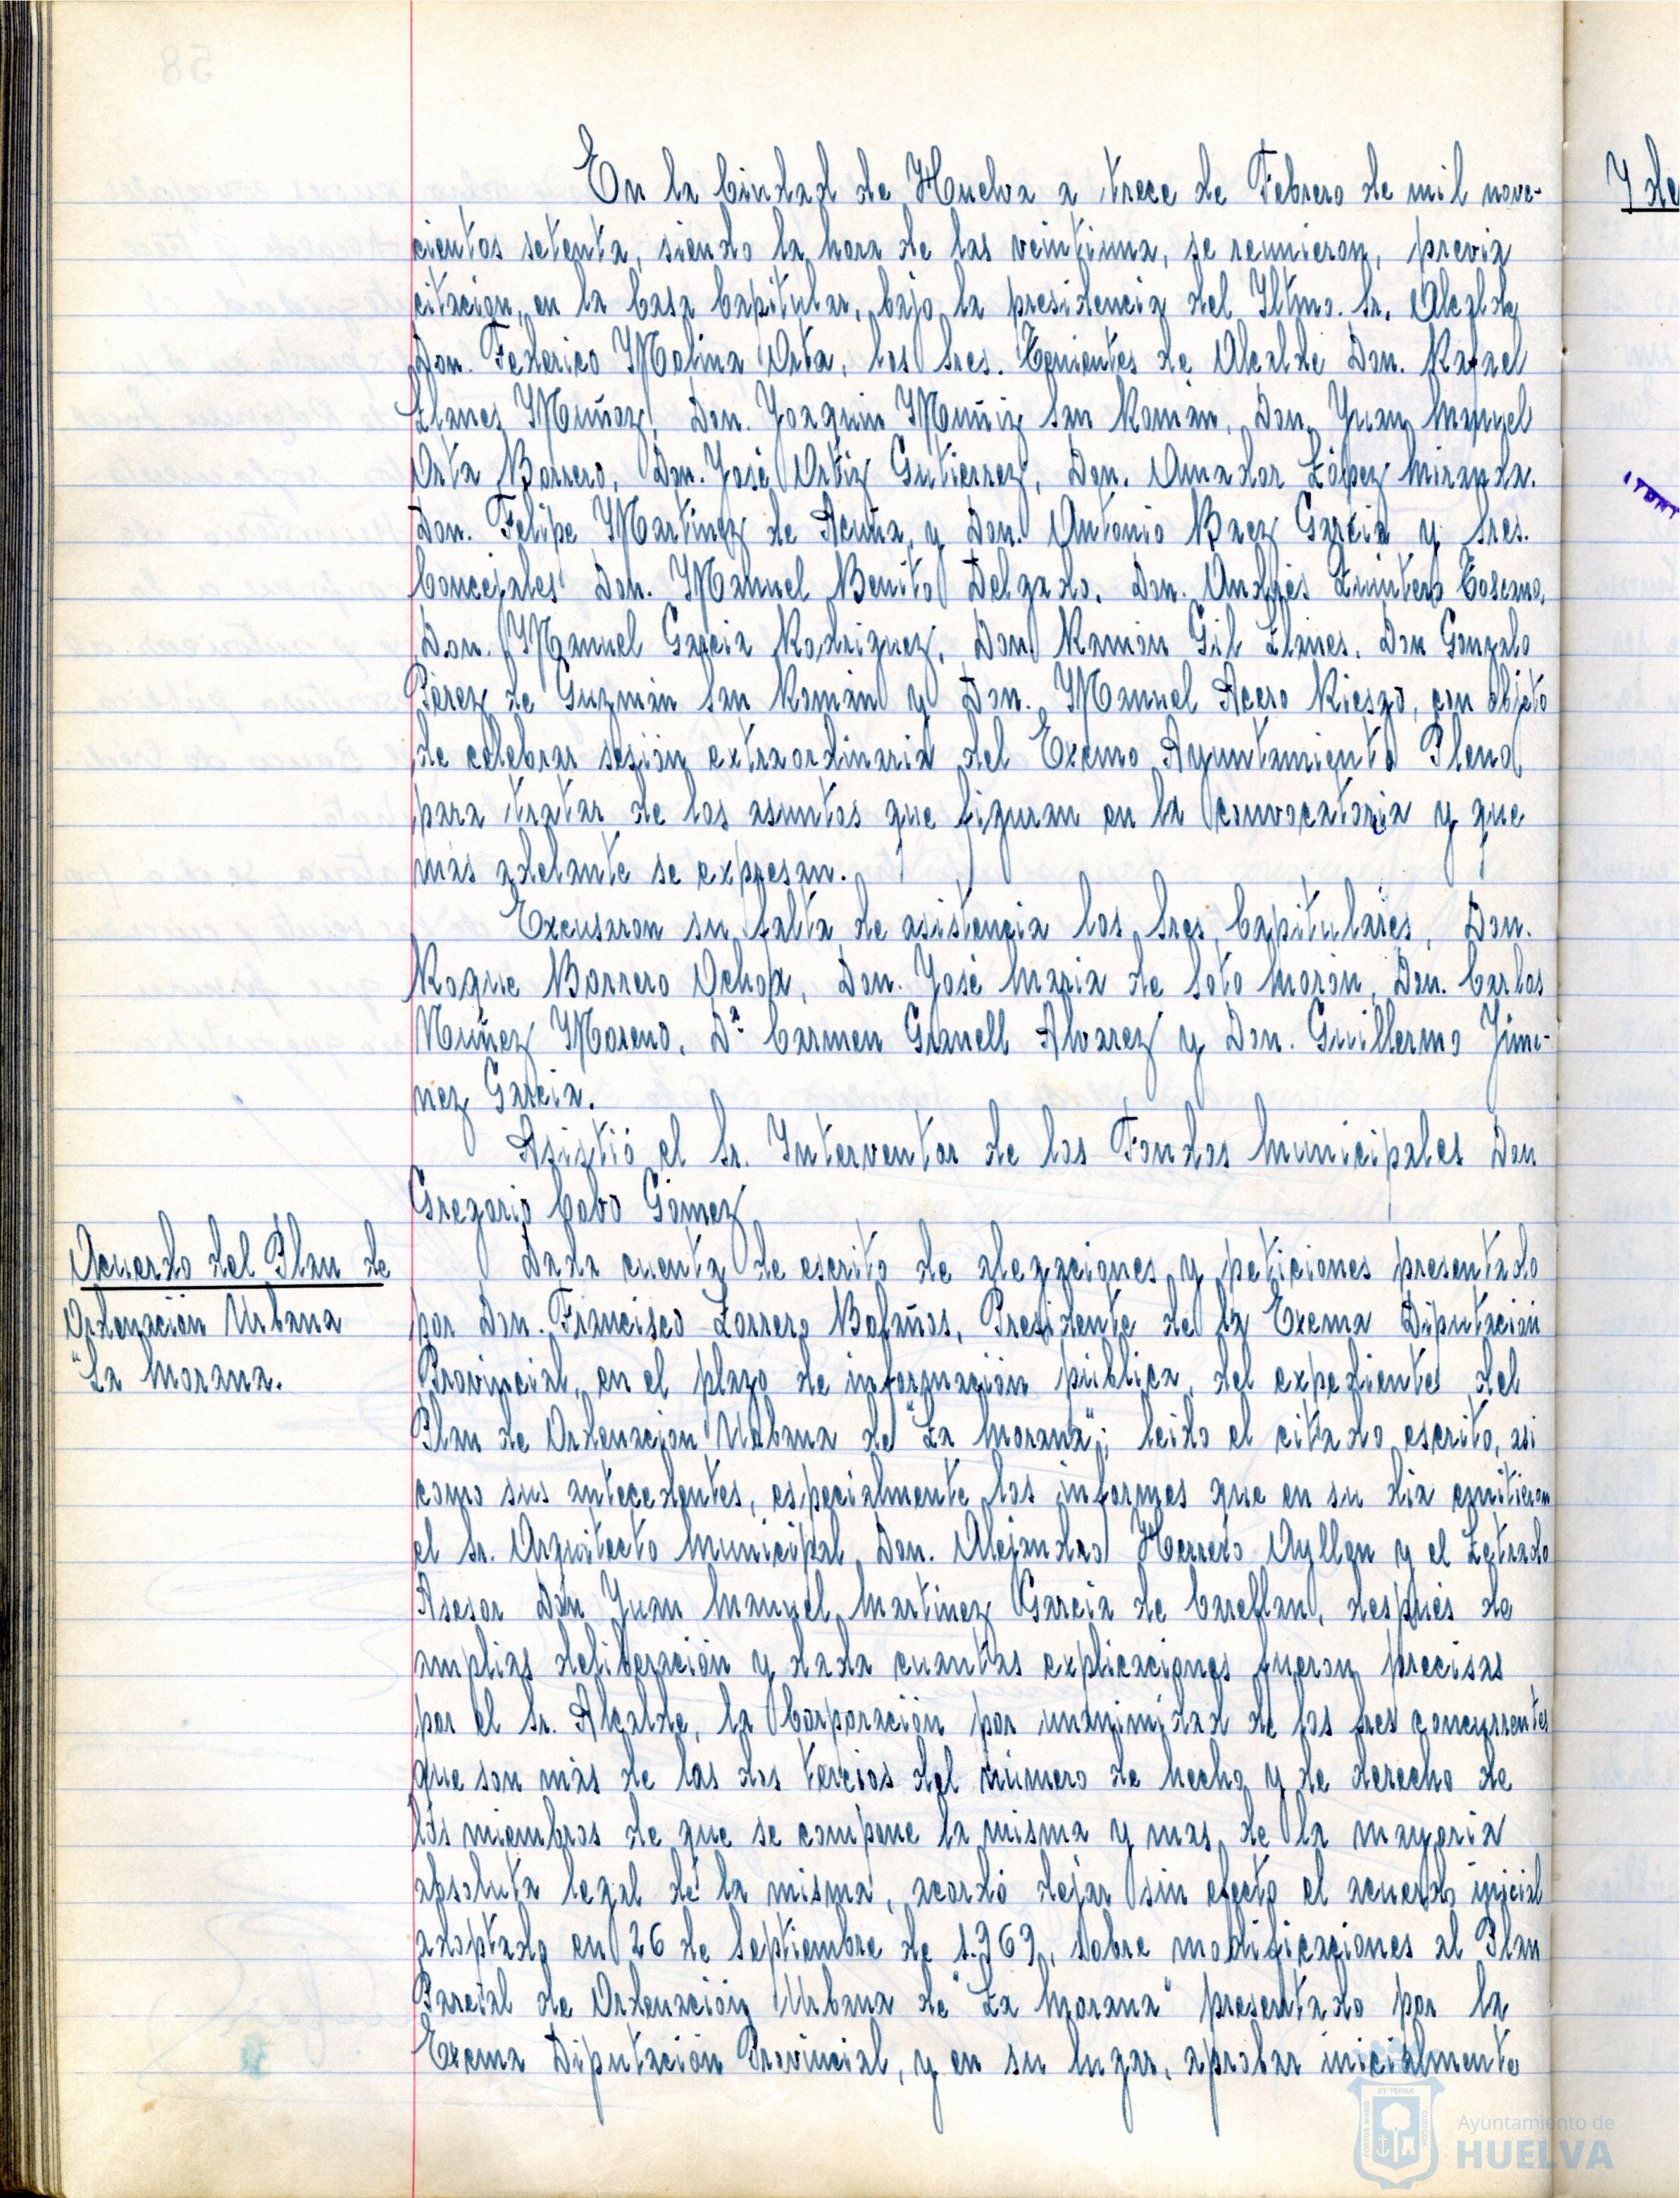 En la Ciudad de Huelva a trece de Febrero de mil nove-
cientos setenta, siendo la hora de las veintiuna, se reunieron, previa
citacion, en la Casa Capitular, bajo la presidencia del Iltmo. Sr. Alcalde
Don. Federico Molina Orta, los Sres. Tenientes de Alcalde Don. Rafael
Llanes Muñoz, Don. Joaquin Muñiz San Román, Don. Juan Manuel
Orta Borrero, Don. José Ortiz Gutierrez, Don. Amador López Miranda.
Don. Felipe Martínez de Acuña, y Don. Antonio Baez García y Sres.
Concejales Don. Manuel Benito Delgado, Don. Andrés Quintero Toscano,
Don. Manuel García Rodriguez, Don Ramón Gil Llanes, Don Gonzalo
Pérez de Guzmán San Román y Don. Manuel Acero Riesgo, con objeto
de celebrar sesión extraordinaria del Excmo Ayuntamiento Pleno
para tratar de los asuntos que figuran en la convocatoria y que
más adelante se expresan.
Excusaron su falta de asistencia los Sres. Capitulares, Don.
Roque Borrero Ochoa, Don. José Maria de Soto Morón, Don. Carlos
Nuñez Moreno, Dª Carmen Granell Alvarez y Don. Guillermo Jime-
nez García.
Asistió el Sr. Interventor de los Fondos Municipales Don
Gregorio Cabo Gómez
Acuerdo del Plan de
Ordenación Urbana
"La Morana.
Dada cuenta de escrito de alegaciones y peticiones presentado
por Don. Francisco Zorrero Bolaños, Presidente de la Excma Diputación
Provincial, en el plazo de información pública, del expediente del
Plan de Ordenación Urbana de "La Morana"; leido el citado escrito, asi
como sus antecedentes, especialmente los informes que en su dia emitieron
el Sr. Arquitecto Municipal, Don. Alejandro Herrero Ayllon y el Letrado
Asesor Don Juan Manuel Martinez García de después de
amplias deliberación y dada cuantas explicaciones fueron precisas
por el Sr. Alcalde, la Corporación por unanimidad de los Sres concurrentes
que son más de las dos tercios del número de hecho y de derecho de
los miembros de que se compone la misma y mas de la mayoría
absoluta legal de la misma, acordó dejar sin efecto el acuerdo inicial
adoptado en 26 de Septiembre de 1.969, sobre modificaciones al Plan
Parcial de Ordenación Urbana de "La Morana" presentado por la
Excma Diputación Provincial, y en su lugar, aprobar inicialmente
Y de
Ayuntamiento de
HUELVA